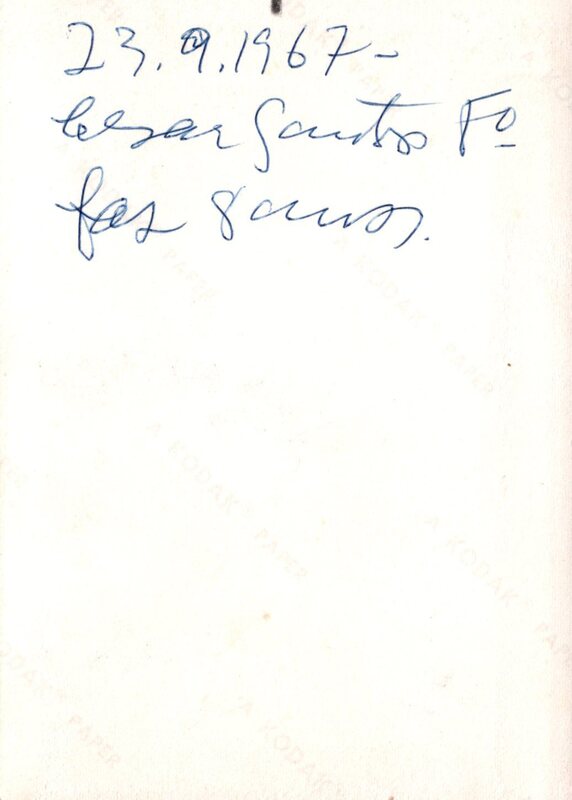 23.9.1967-
Cesar Santos Fº
faz 8 anos.
A KODAK PAPER
A KODAK PAPER
A KODAK PAPER
A KODAK PAPER
A KODAK PAPER